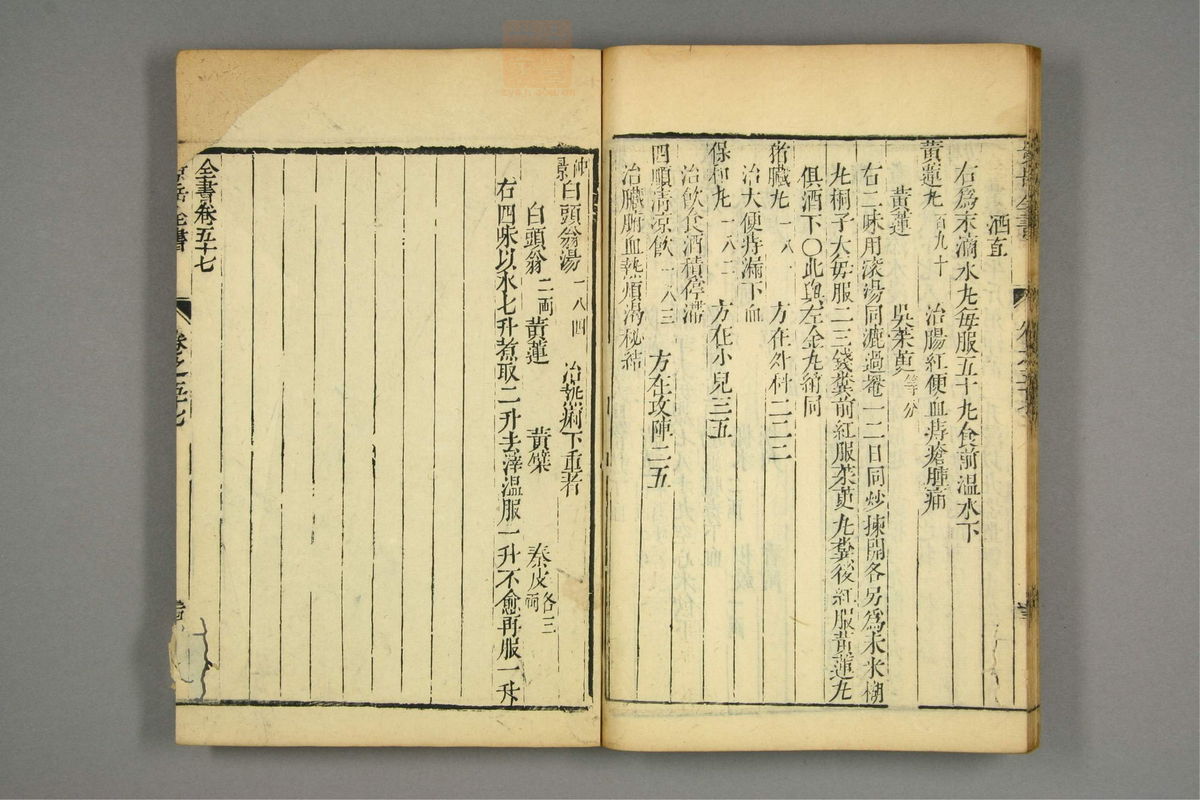 景岳全書
酒直
右爲末滴水丸每服五十丸食前温水下
黄連丸 百九十 治腸紅便血痔瘡腫痛
黄連 吳茱萸等分
右二味用滚湯同漉過罨一二日同炒揀開各另爲末米糊
丸桐子大每服二三錢糞前紅服茱萸丸糞後紅服黄連丸
俱酒下〇此與左金丸稍同
猪臟丸 一八一 方在外科二二二
治大便痔漏下血
保和丸 一八二 方在小兒三五
治飲食酒積停滯
四順清凉飲 一八三 方在攻陣二五
治臟腑血熱煩渴秘結
仲景白頭翁湯 一八四 治熱痢下重者
白頭翁二兩 黄連 黄檗 秦皮各三兩
右四味以水七升煮取二升去滓温服一升不愈再服一升
全書卷五十七
景岳全書 卷之五十七